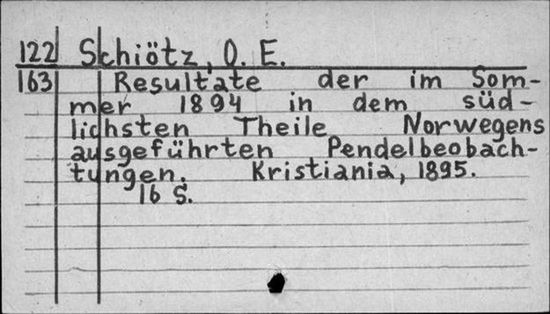 122 Schiötz, O. E.
163 Resultate der im Som-
mer 1894 in dem süd-
lichsten Theile Norwegens
ausgeführten Pendelbeobach-
tungen. Kristiania, 1895.
16 S.